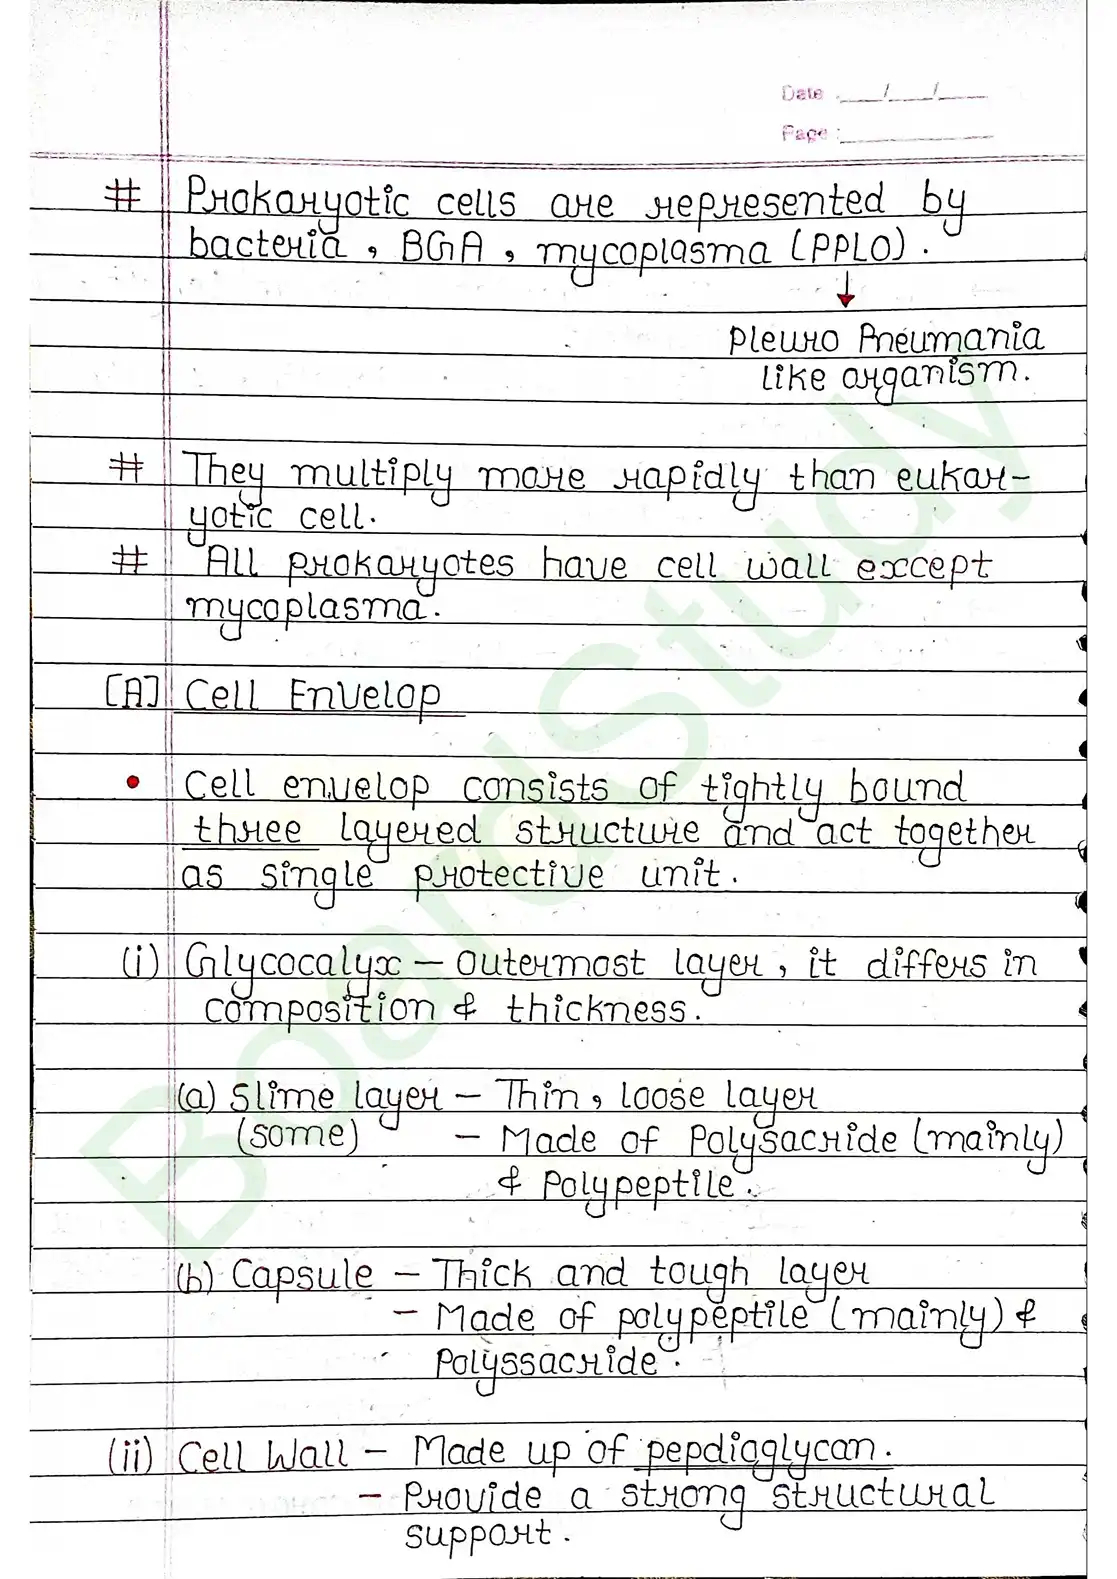 Date : __/__/__
Page : ________
# Prokaryotic cells are represented by
bacteria, BGA, mycoplasma (PPLO).
↓
Pleuro Pneumania
like organism.
# They multiply more rapidly than eukar-
yotic cell.
# All prokaryotes have cell wall except
mycoplasma.
[A] Cell Envelop
• Cell envelop consists of tightly bound
three layered structure and act together
as single protective unit.
(i) Glycocalyx – Outermost layer, it differs in
composition & thickness.
(a) Slime layer – Thin, loose layer
(some) – Made of Polysacride (mainly)
& Polypeptile.
(b) Capsule – Thick and tough layer
– Made of polypeptile (mainly) &
Polyssacride.
(ii) Cell Wall – Made up of pepdiaglycan.
– Provide a strong structural
support.
BoardStudy